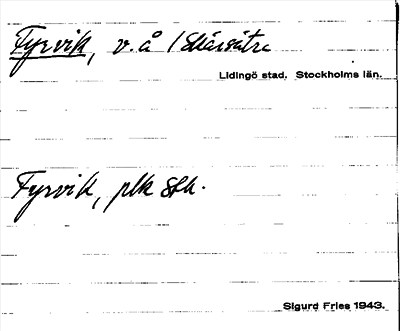 Fyrvik, v. å / Skärsätra
Lidingö stad. Stockholms län.
Fyrvik, plk Sth.
Sigurd Fries 1943.